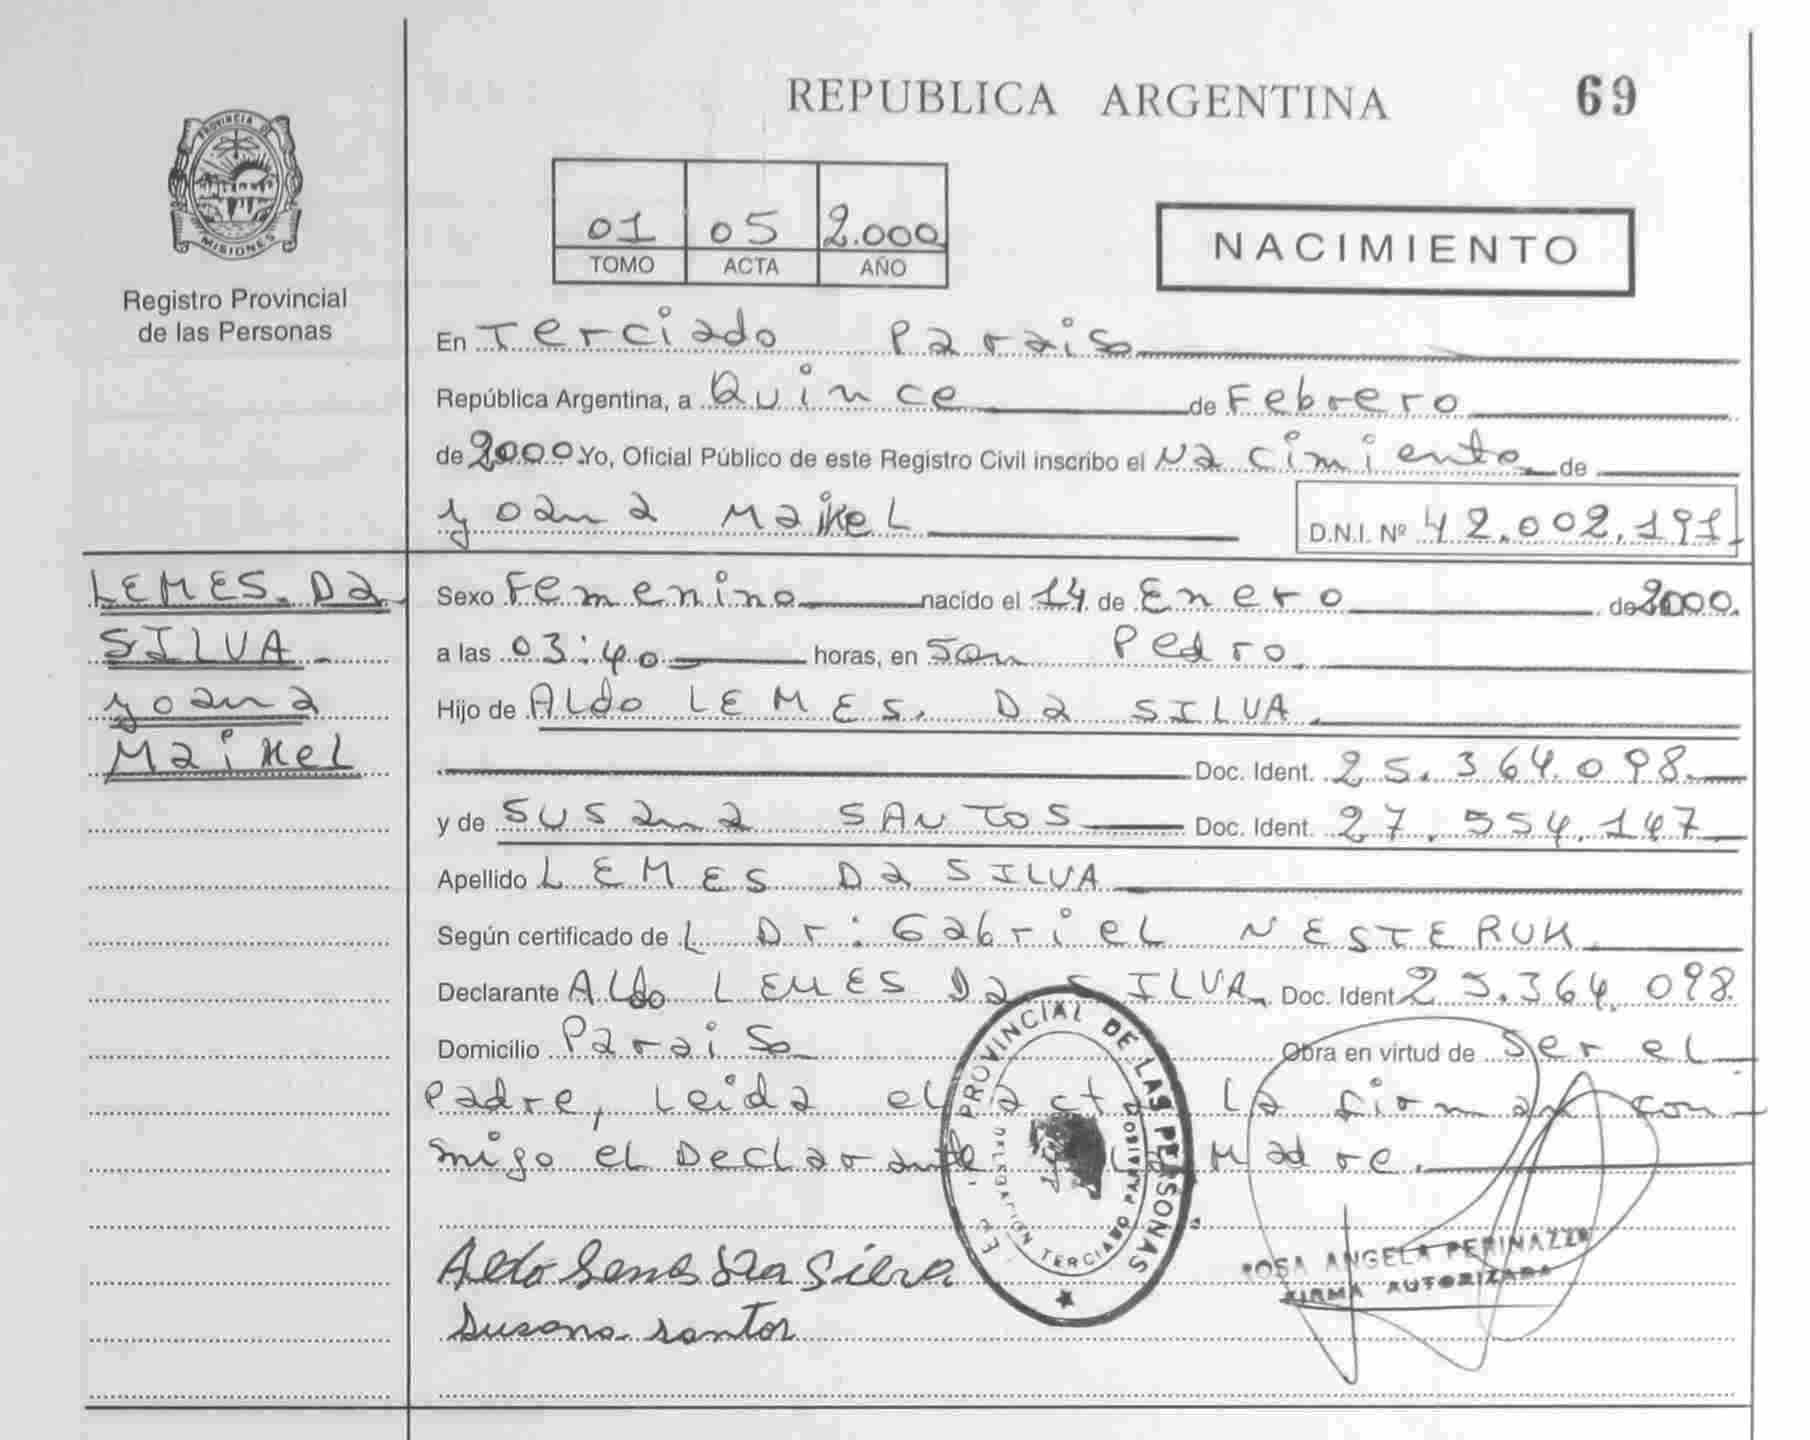 REPUBLICA ARGENTINA
69
PROVINCIA DE
MISIONES
Registro Provincial
de las Personas
01 05 2.000
TOMO ACTA AÑO
NACIMIENTO
En Terciado Paraiso
República Argentina, a Quince de Febrero
de 2000 Yo, Oficial Público de este Registro Civil inscribo el Nacimiento de
yoana Maikel
D.N.I. Nº 42.002.191.
LEMES. Da
SILVA.
yoana
Maikel
Sexo Femenino nacido el 14 de Enero de 2000.
a las 03:40 horas, en San Pedro.
Hijo de Aldo LEMES. Da SILVA.
Doc. Ident. 25.364.098.
y de SUSana SANTOS Doc. Ident. 27.554.147
Apellido LEMES Da SILVA
Según certificado de L Dr: Gabriel NESTERUK.
Declarante Aldo LEMES Da SILVA. Doc. Ident 25.364.098.
Domicilio Paraiso Obra en virtud de Ser el
Padre, Leida el acta La firman con
migo el Declarante y La Madre.
PROVINCIAL DE LAS PERSONAS
DELEGACIÓN TERCIADO PARAISO
Aldo Lemes Da Silva
Susana santos
ROSA ANGELA PERINAZZO
FIRMA AUTORIZADA